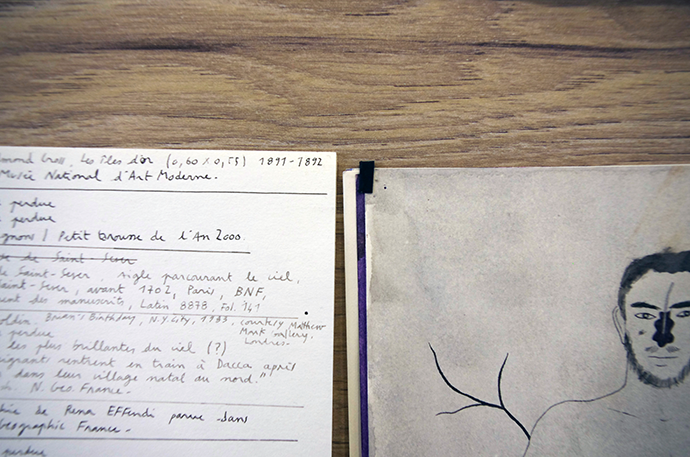 mond Cross, Les îles d'or (0,60 x 0,55) 1891-1892
Musée National d'Art Moderne.
perdue
perdue
gnons / Petit trousse de l'An 2000.
se de Saint-Sever
de Saint-Sever, aigle parcourant le ciel,
aint-Sever, avant 1702, Paris, BNF,
ent des manuscrits, Latin 8878, Fol. 141
oldin. Brian's Birthday, N.Y. City, 1983, courtesy Matthew
Mark Gallery,
Londres.
perdue
les plus brillantes du ciel (?)
igrant rentrent en train à Dacca après
dans leur village natal au nord."
N. Geo. France.
hie de Rena Effendi parue dans
eographic France.
perdue